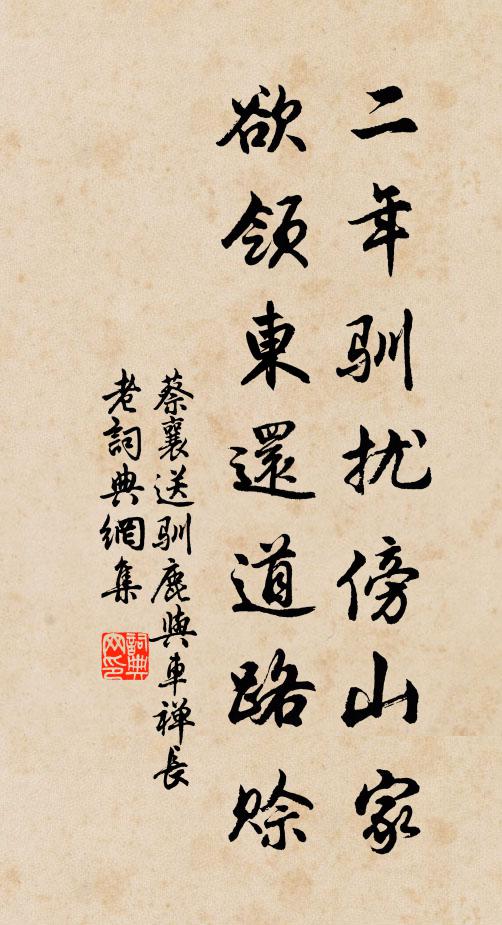 二年驯扰傍山家
欲领東還道路赊
蔡襄送驯鹿與車禅長
老詞典網集
詞典網印